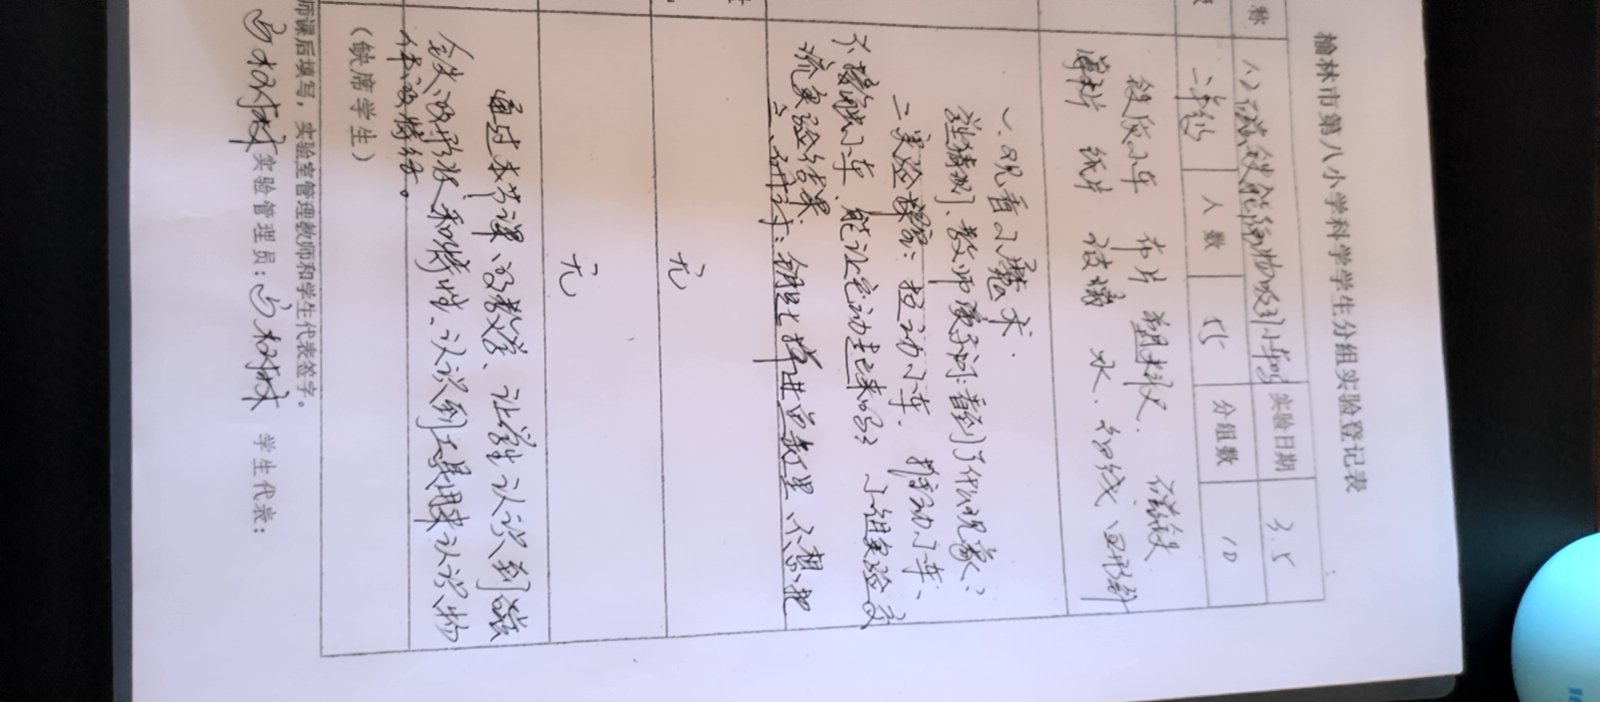 榆林市第八小学科学学生分组实验登记表
称 (2)磁铁能隔物吸引小车吗 实验日期 3.5
级 二年级 人数 55 分组数 10
铁质小车 布片 塑料尺 磁铁
纸片 玻璃 水 细线 回形针
一、观看小魔术.
猜测、教师提问:看到了什么现象?
二、实验探究: 拉动小车. 推动小车、
不接触小车 能让它动起来吗? 小组实验 交
流实验结果
三、研讨: 钥匙掉进里、不想把
无
无
通过本节课的教学、让学生认识到磁
铁的形状和特性、认识到工具用来认识物
体的特征。
(缺席学生)
师课后填写,实验室管理教师和学生代表签字。
实验管理员: 学生代表: